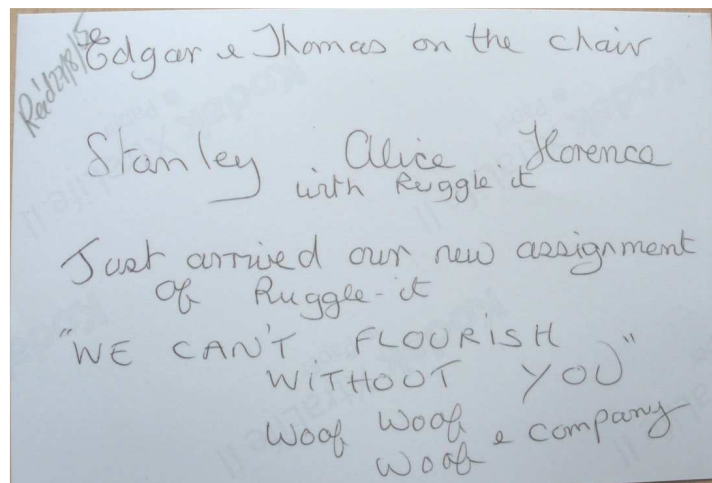 Rec'd 27/8/15
Edgar & Thomas on the chair
Stanley Alice Florence
with Ruggle it
Just arrived our new assignment
of Ruggle-it
"WE CAN'T FLOURISH
WITHOUT YOU"
Woof Woof & Company
Woof